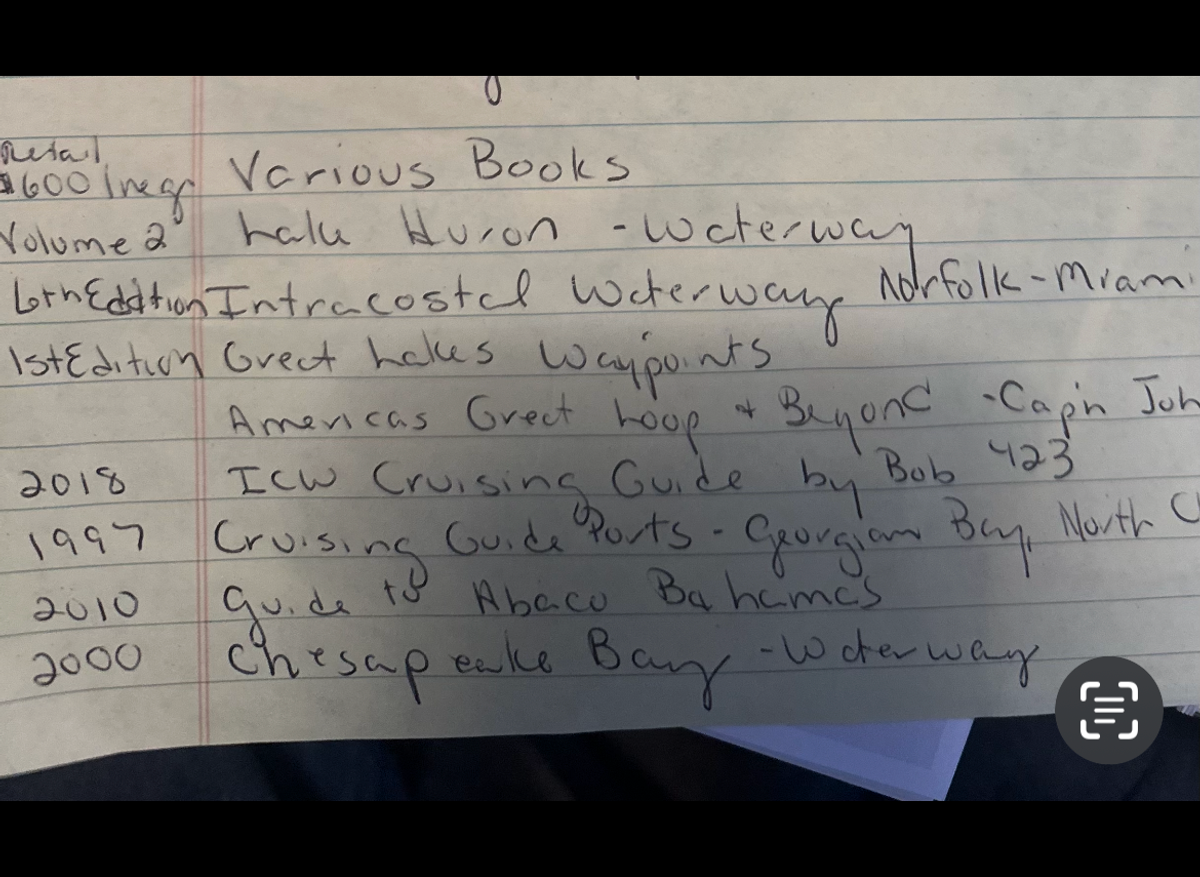 Retail
$600/neg Various Books
Volume 2 Lake Huron - Waterway
6th Eddtion Intracostal Waterway Norfolk - Miami
1st Edition Great Lakes Waypoints
Americas Great Loop + Beyond - Cap'n Joh
2018 ICW Cruising Guide by Bob 423
1997 Cruising Guide Ports - Georgian Bay, North Ch
2010 Guide to Abaco Bahamas
2000 Chesapeake Bay - Waterway